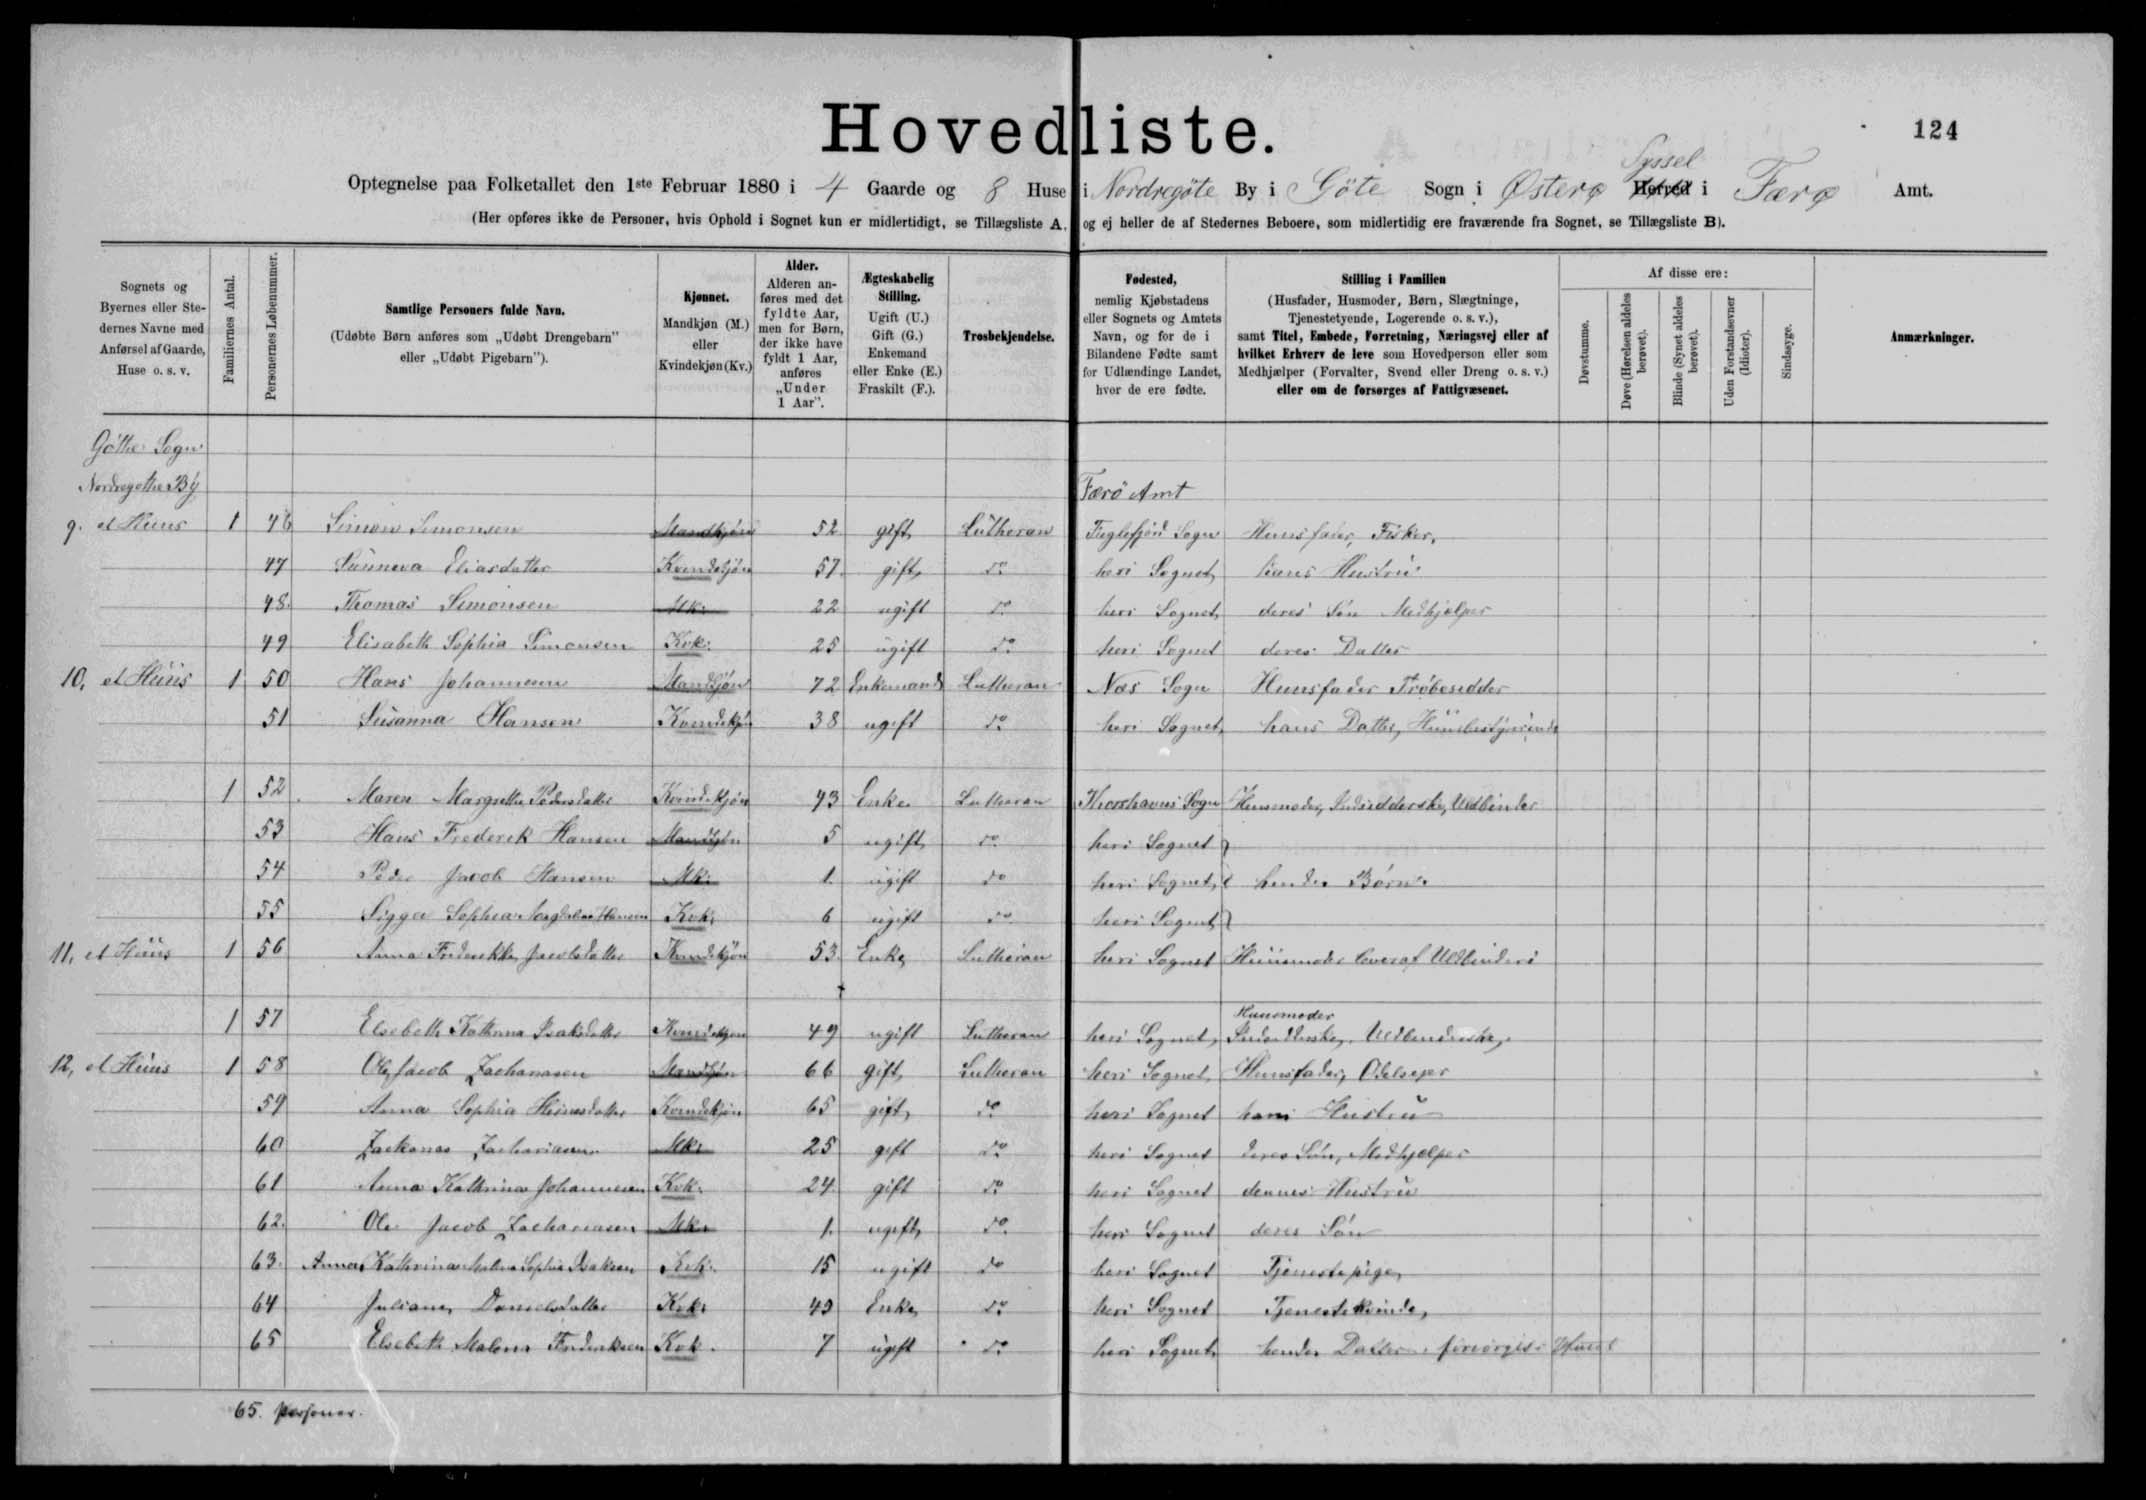 124
Hovedliste.
Optegnelse paa Folketallet den 1ste Februar 1880 i 4 Gaarde og 8 Huse i Nordregöte By i Göte Sogn i Østerø Syssel Herred i Færø Amt.
(Her opføres ikke de Personer, hvis Ophold i Sognet kun er midlertidigt, se Tillægsliste A, og ej heller de af Stedernes Beboere, som midlertidig ere fraværende fra Sognet, se Tillægsliste B).
Sognets og Byernes eller Stedernes Navne med Anførsel af Gaarde, Huse o. s. v.
Familiernes Antal.
Personernes Løbenummer.
Samtlige Personers fulde Navn.
(Udøbte Børn anføres som „Udøbt Drengebarn” eller „Udøbt Pigebarn”).
Kjønnet.
Mandkjøn (M.) eller Kvindekjøn (Kv.)
Alder.
Alderen anføres med det fyldte Aar, men for Børn, der ikke have fyldt 1 Aar, anføres „Under 1 Aar”.
Ægteskabelig Stilling.
Ugift (U.) Gift (G.) Enkemand eller Enke (E.) Fraskilt (F.).
Trosbekjendelse.
Fødested,
nemlig Kjøbstadens eller Sognets og Amtets Navn, og for de i Bilandene Fødte samt for Udlændinge Landet, hvor de ere fødte.
Stilling i Familien
(Husfader, Husmoder, Børn, Slægtninge, Tjenestetyende, Logerende o. s. v.),
samt Titel, Embede, Forretning, Næringsvej eller af hvilket Erhverv de leve som Hovedperson eller som Medhjælper (Forvalter, Svend eller Dreng o. s. v.) eller om de forsørges af Fattigvæsenet.
Af disse ere:
Døvstumme.
Døve (Hørelsen aldeles berøvet).
Blinde (Synet aldeles berøvet).
Uden Forstandsevner (Idioter).
Sindssyge.
Anmærkninger.
Göthe Sogn
Nordregøthe By Færö Amt
9. et Huus 1 46 Simon Simonsen Mandkjøn 52 gift Lutheran Fuglefjord Sogn Huusfader, Fisker,
47 Sunneva Eliasdatter Kvindekjøn 57 gift do heri Sognet hans Hustru
48. Thomas Simonsen Mk: 22 ugift do heri Sognet deres Søn Medhjælper
49 Elisabeth Sophia Simonsen Kvk: 25 ugift do heri Sognet deres Datter
10, et Huus 1 50 Hans Johannesen Mandkjøn 72 Enkemand Lutheran Næs Sogn Huusfader
51 Susanna Hansen Kvindekjøn 38 ugift do heri Sognet, hans Datter, Huusbestyrerinde
1 52 Maren Margrethe Pedersdatter Kvindekjøn 43 Enke Lutheran Thorshavns Sogn Huusmoder, Inds­idderske, Uldbinder
53 Hans Frederik Hansen Mandkjøn 5 ugift do heri Sognet
54 Peder Jacob Hansen Mk: 1. ugift do heri Sognet, hendes Børn.
55 Sigga Sophia Magdalena Hansen Kvk: 6 ugift do heri Sognet
11, et Huus 1 56 Anna Frederikke Jacobsdatter Kvindekjøn 53 Enke Lutheran heri Sognet Huusmoder lever af Uldbinderi
1 57 Elsebeth Kathrina Isaksdatter Kvindekjøn 49 ugift Lutheran heri Sognet, Huusmoder Indsidderske, Uldbinderske,
12, et Huus 1 58 Ole Jacob Zachariasen Mandkjøn 66 gift Lutheran heri Sognet Huusfader, Odelsejer
59 Anna Sophia Kvindekjøn 65 gift do heri Sognet hans Hustru
60 Zacharias Zachariasen Mk: 25 gift do heri Sognet deres Søn, Medhjælper
61 Anna Kathrina Johannesen Kvk: 24 gift do heri Sognet dennes Hustru
62. Ole Jacob Zachariasen Mk: 1. ugift do heri Sognet deres Søn
63. Anna Kathrina Malena Sophia Isaksen Kvk: 15 ugift do heri Sognet Tjenestepige,
64 Juliane Danielsdatter Kvk: 49 Enke do heri Sognet Tjenestekvinde,
65 Elsebeth Malena Frederiksen Kvk. 7 ugift do heri Sognet hendes Datter, forsørges i Huset
65. Personer.